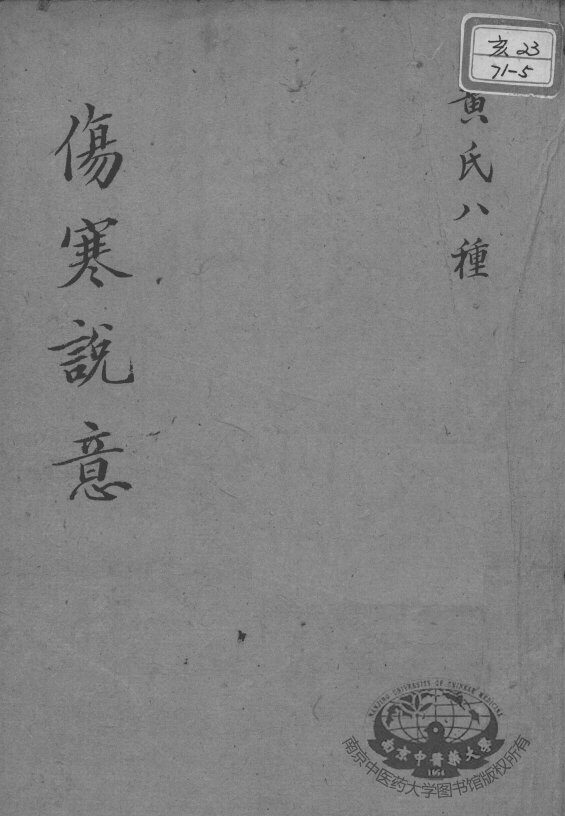 亥23
71-5
黄氏八種
傷寒說意
NANJING UNIVERSITY OF CHINESE MEDICINE
南京中醫藥大學
1954
南京中医药大学图书馆版权所有